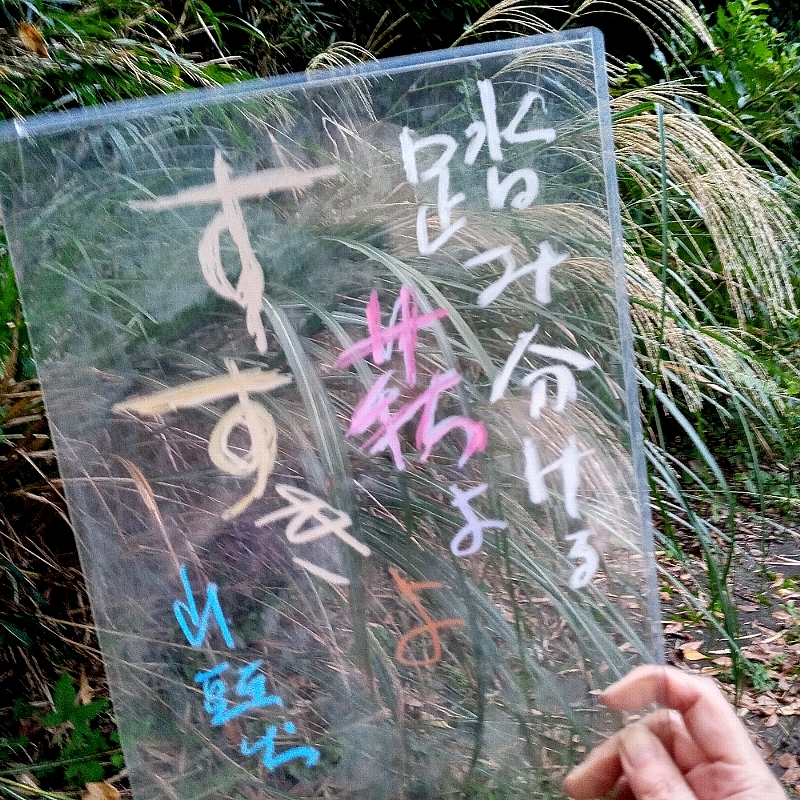 踏み分ける
荻よ
すすき
山頭火